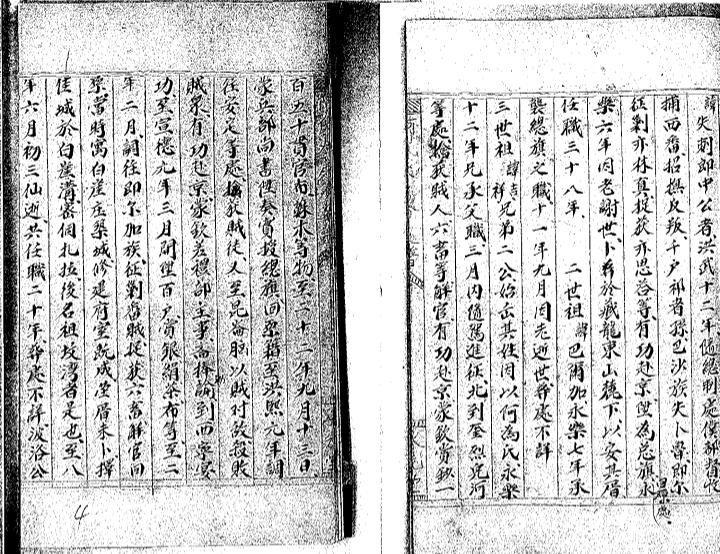 諱失剌即中公者洪武十二年隨總制處僕
捕西番招撫反叛千户祁者孫巴沙族失卜魯即尔
征剿亦林真投欵亦恩洛等有功赴京陞為总旗永
樂六年因老謝世卜葬於藏龍東山麓下以安其厝
任職三十八年 二世祖諱巴爾加永樂七年承
襲總旗之職十一年九月因老逝世葬處不詳
三世祖諱吉祥兄弟二公始缶其姓因以何為氏永樂
十二年兄承父職三月内隨駕進征北到至烈児河
等處搶获賊人六畜等解官有功赴京蒙欽賞鈔一
百五十貫官布蘇木等物至二十二年九月十三日
蒙兵部尚書陞奏實授總旗回衛籍至洪熙元年調
往安定等處擒获賊徒又至昆崙腦以賊对敵投敗
賊衆有功赴京蒙欽差禮部主事高捧勅到西寧安
功至宣德元年三月尉陞百户賞銀絹茶布等至二
年二月詞往即尔加族征剿舊賊捉获六畜解官回
衛當時寓白崖庄築城修建府室既成塋厝未卜擇
佳城於白崖溝番個扎拉後名祖坟湾者是也至八
年六月初三仙逝共任職二十年葬處不詳波洛公
4